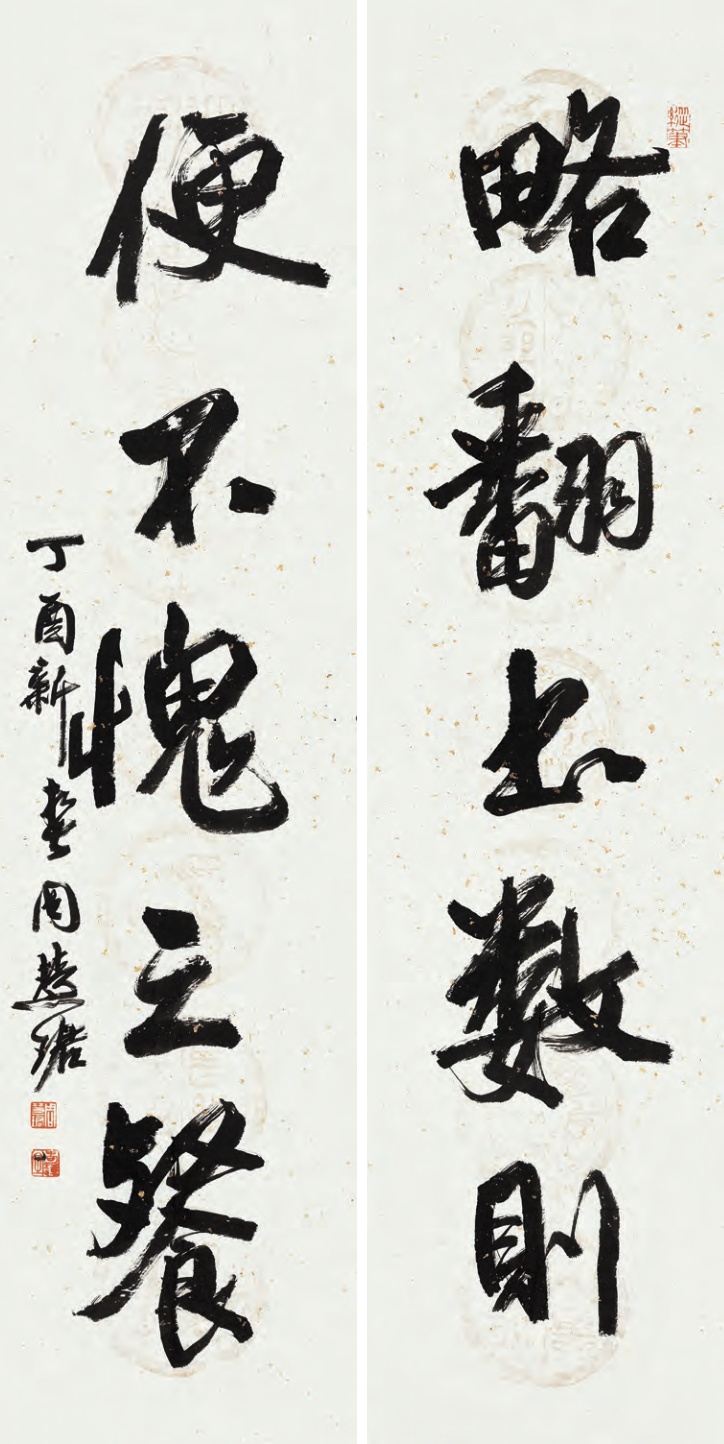 略翻书数则
便不愧三餐
丁酉新春周慧珺